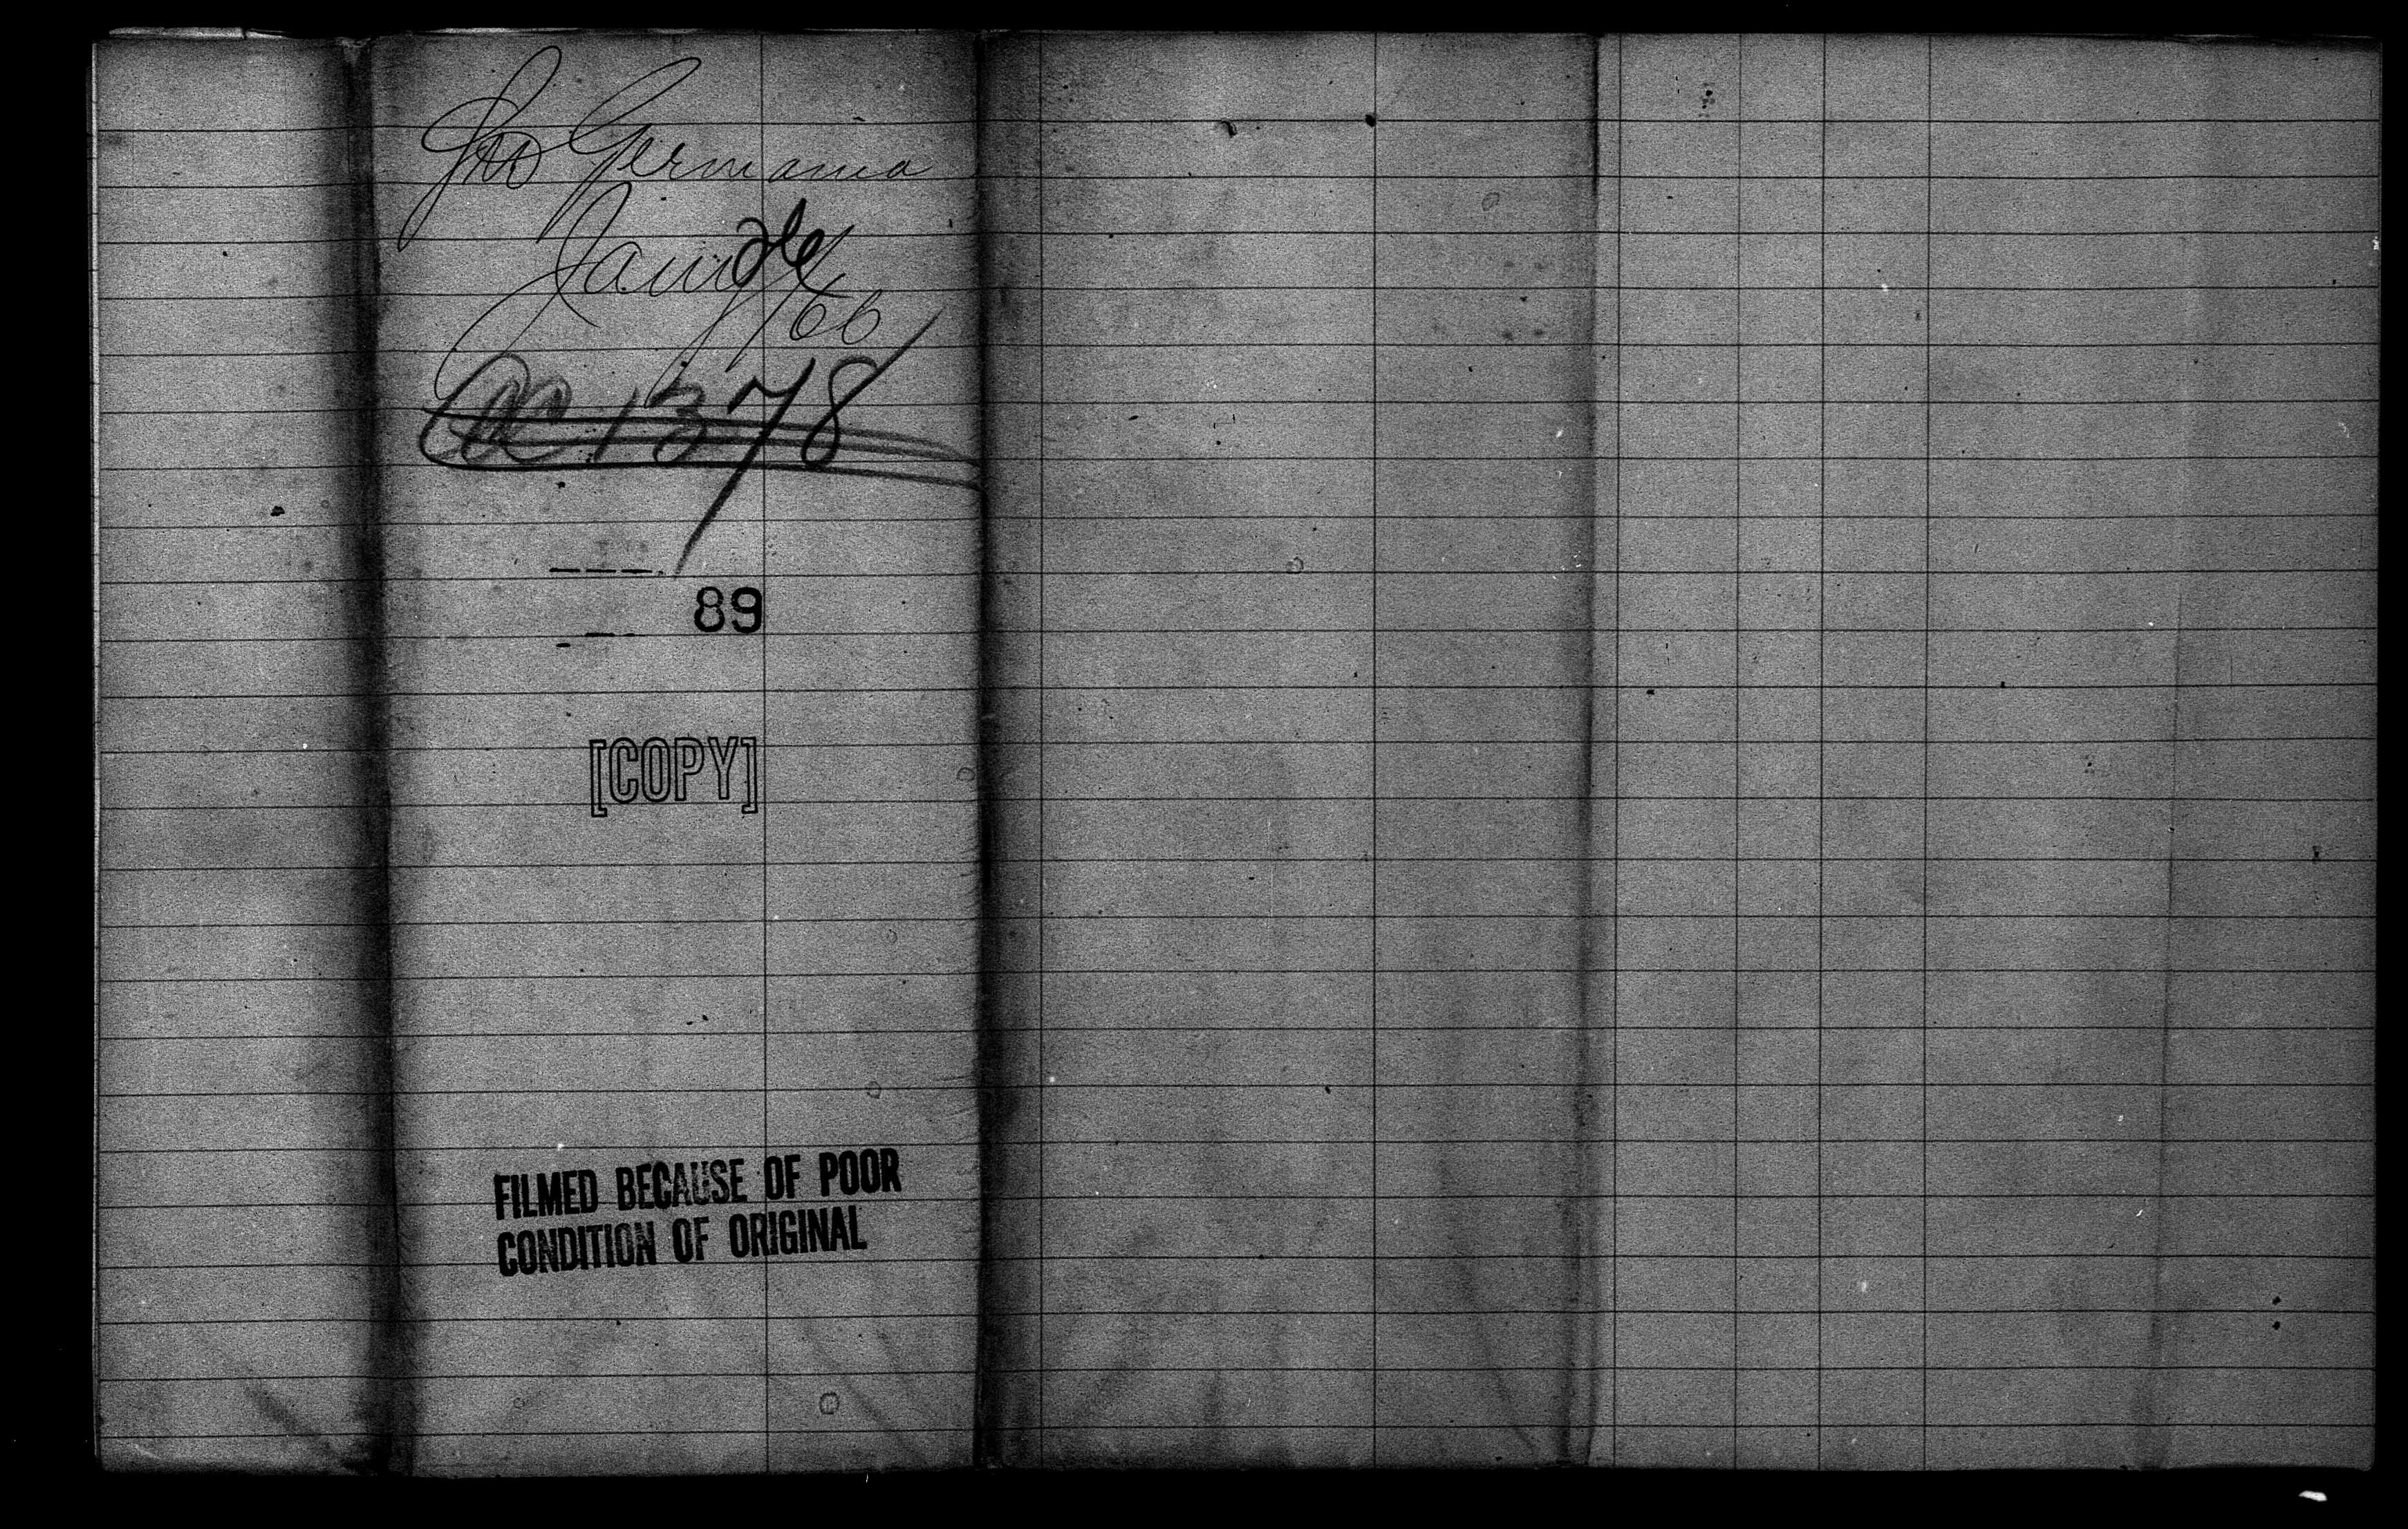 Germania
Jany 26
/66
1378
89
[COPY]
FILMED BECAUSE OF POOR
CONDITION OF ORIGINAL